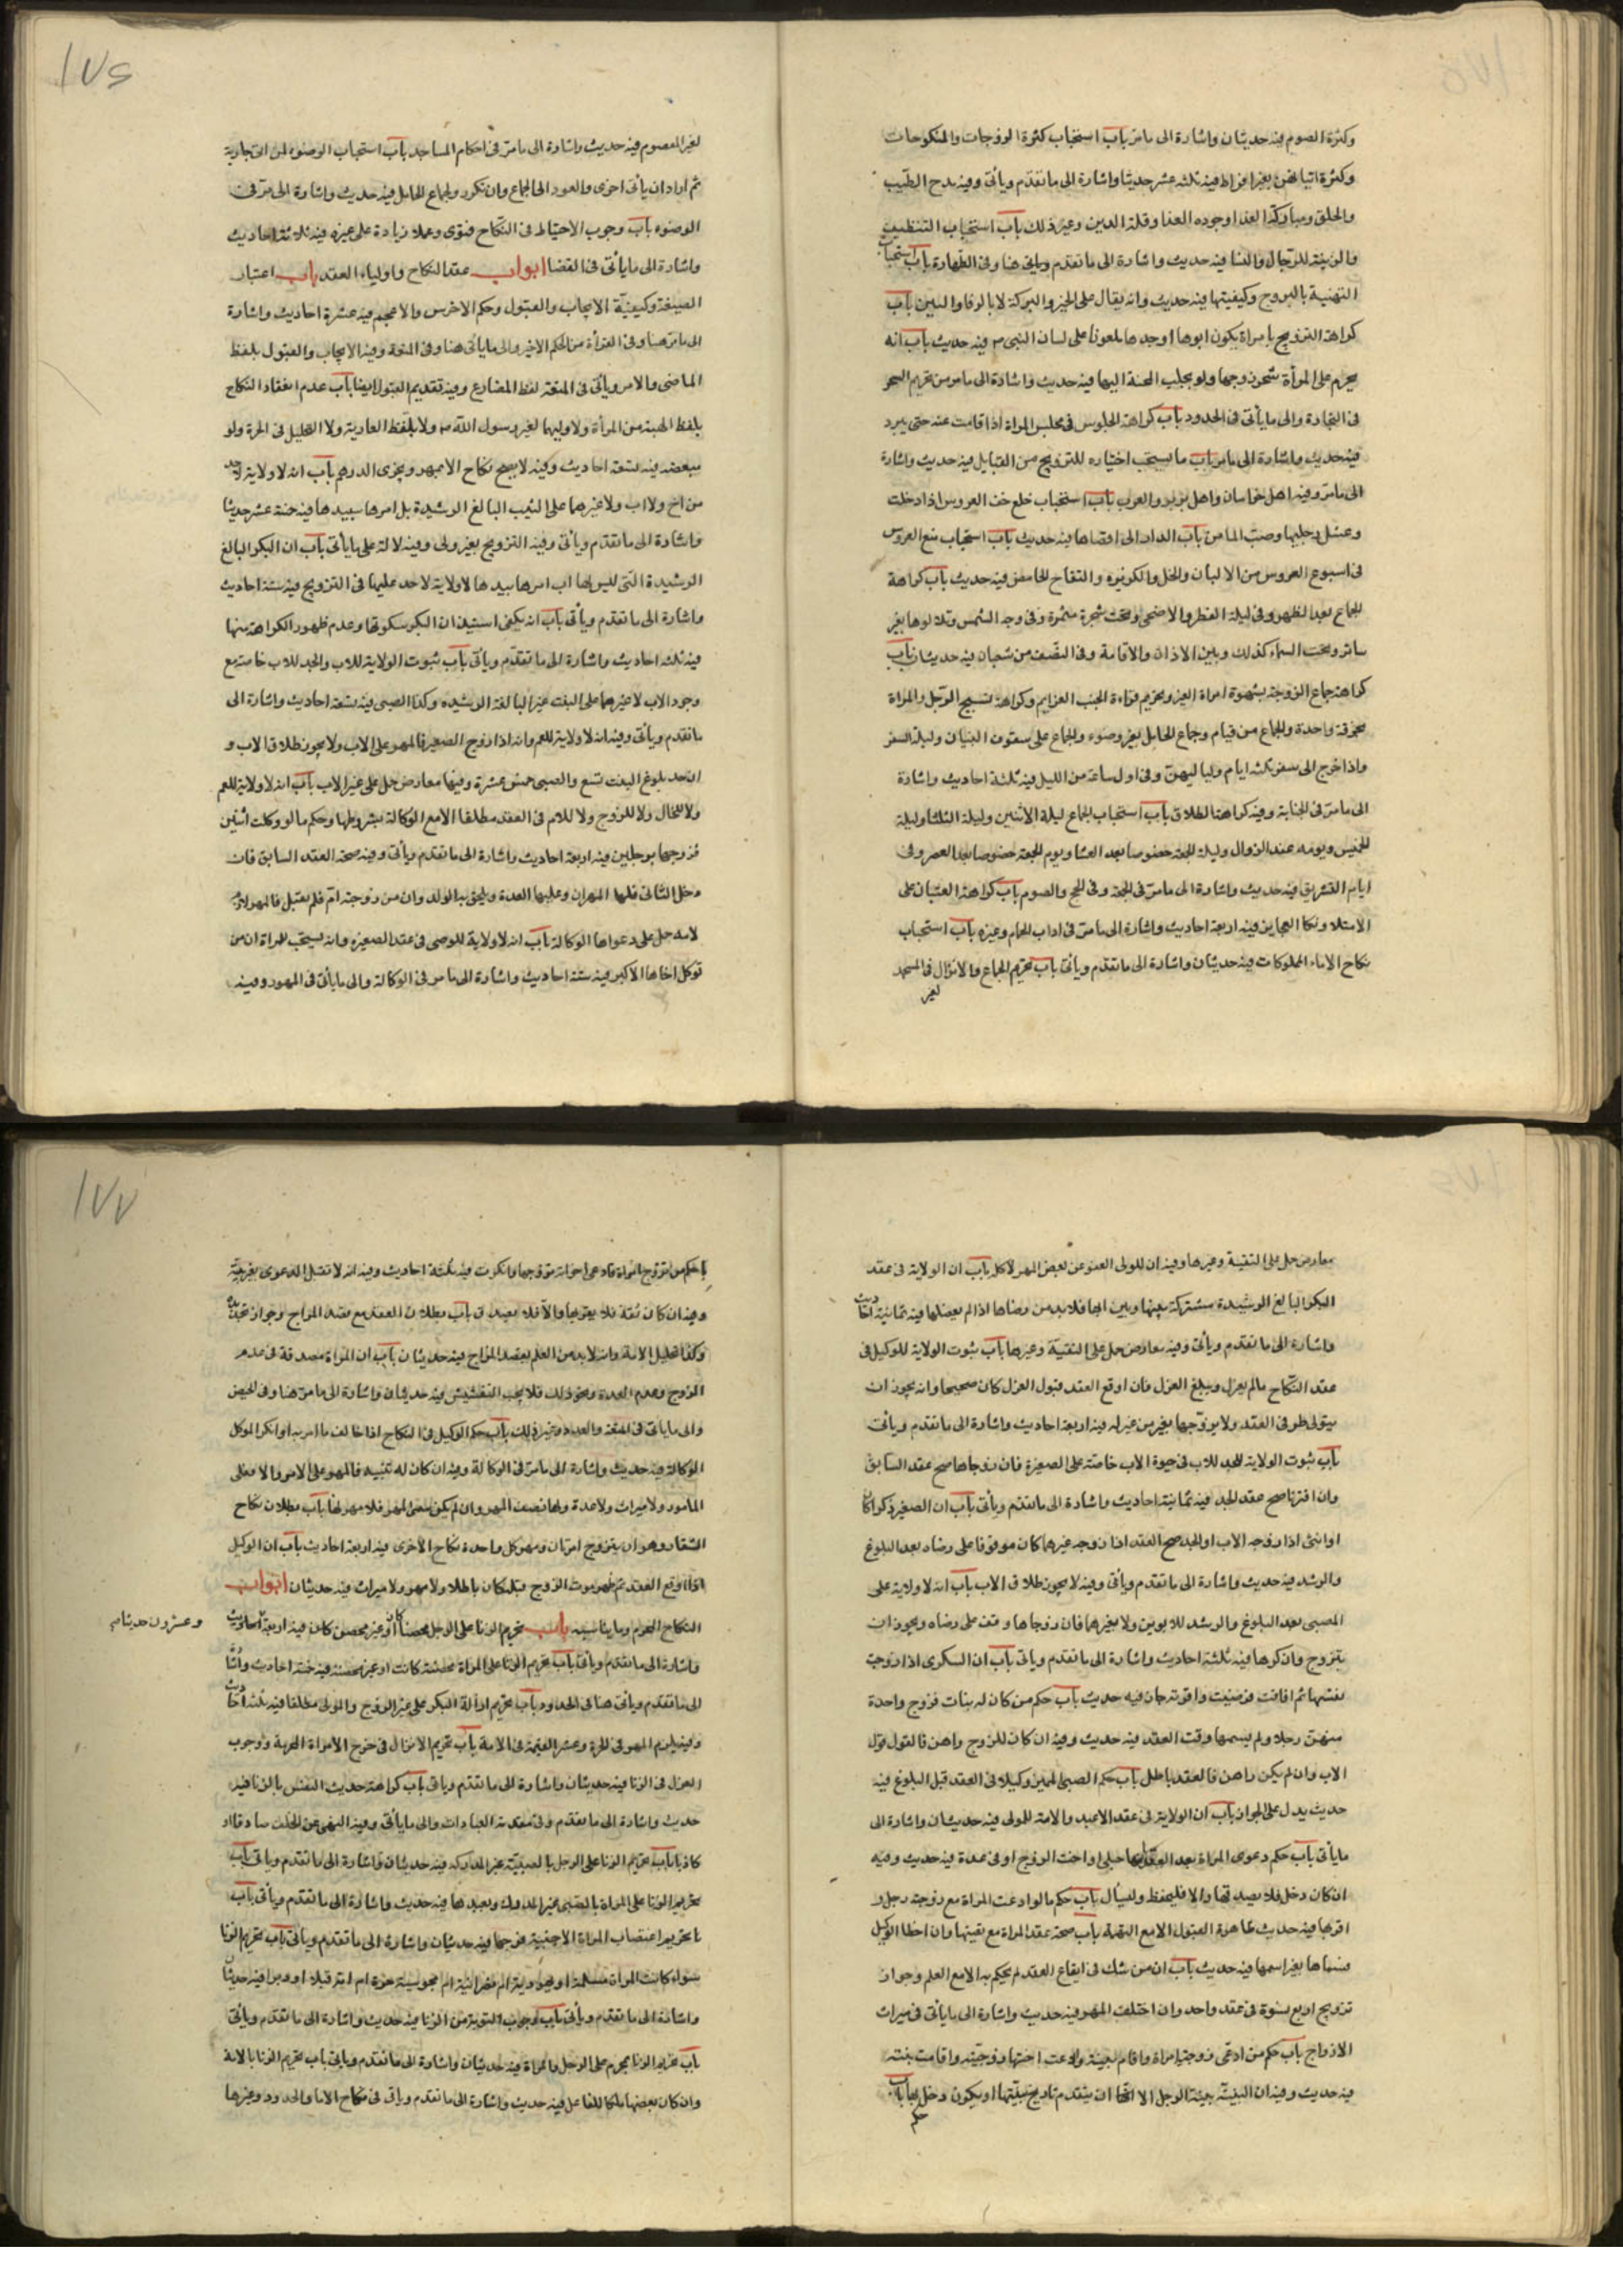 وكثرة الصوم فيه حديثان واشارة الى ما مرّ باب استحباب كثرة الزوجات والمنكوحات
وكثرة اتيانهن بغير افراط فيه ثلثه عشر حديثا واشارة الى ما تقدّم ويأتى وفيه مدح الطيب
والحلق ومباكرة الغدا وجوده الحذا وقلة الدين وغير ذلك باب استحباب التنظيف
والزينة للرّجال والنسا فيه حديث واشارة الى ما تقدم ويأتى هنا وفى الطهارة باب استحباب
التهنية بالتزويج وكيفيتها فيه حديث وانه يقال على الخير والبركة لا بالرفا والبنين باب
كراهة التزويج بامراة يكون ابوها او جدها ملعونا على لسان النبى ص فيه حديث باب انه
يحرم على المرأة سحر زوجها ولو بجلب المحبة اليها فيه حديث واشارة الى ما مر من تحريم السحر
فى التجارة والى ما يأتى فى الحدود باب كراهة الجلوس فى مجلس المراة اذا قامت عنه حتى يبرد
فيه حديث واشارة الى ما مر باب ما يستحب اختياره للتزويج من القبايل فيه حديث واشارة
الى ما مرّ وفيه اهل خراسان واهل بربر والعرب باب استحباب خلع خف العروس اذا دخلت
وغسل رجليها وصبّ الما من باب الدار الى اقصاها فيه حديث باب استحباب منع العروس
فى اسبوع العروس من الالبان والخل والكزبره والتفاح الحامض فيه حديث باب كراهة
الجماع بعد الظهر وفى ليلة الفطر والاضحى وتحت شجرة مثمرة وفى وجه الشمس وتلالوها بغير
ساتر وتحت السماء كذلك وبين الاذان والاقامة وفى النصف من شعبان فيه حديثان باب
كراهة جماع الزوجة بشهوة امراة الغير وتحريم قراءة الجنب العزايم وكراهة تمسح الرّجل والمراة
بخرقة واحدة والجماع من قيام وجماع الحامل بغير وضوء والجماع على سقوف البنيان وليلة السفر
واذا خرج الى سفر ثلثه ايام ولياليهنّ وفى اول ساعة من الليل فيه ثلثة احاديث واشارة
الى ما مرّ فى الجنابة وفيه كراهة الطلاق باب استحباب الجماع ليلة الاثنين وليلة الثلثا وليلة
الخميس ويومه عند الزوال وليلة الجمعة خصوصا بعد العشا ويوم الجمعة خصوصا بعد العصر وفى
ايام التشريق فيه حديث واشارة الى ما مرّ فى الجمعة وفى الحج والصوم باب كراهة الغشيان على
الامتلا ونكاح العجايز فيه اربعة احاديث واشارة الى ما مرّ فى اداب الحمام وغيره باب استحباب
نكاح الاماء المملوكات فيه حديثان واشارة الى ما تقدّم ويأتى باب تحريم الجماع والانزال فى المسجد
لغير
١٧٦
لغير المعصوم فيه حديث واشارة الى ما مرّ فى احكام المساجد باب استحباب الوضوء لمن اتى جارية
ثم اراد ان يأتى اخرى والعود الى الجماع وان تكرر ولجماع الحامل فيه حديث واشارة الى ما مرّ فى
الوضوء باب وجوب الاحتياط فى النكاح فتوى وعملا زيادة على غيره فيه ثلاثة احاديث
واشارة الى ما يأتى فى القضا ابواب عقد النكاح واولياء العقد باب اعتبار
الصيغة وكيفيّة الايجاب والقبول وحكم الاخرس والاعجم فيه عشرة احاديث واشارة
الى ما مرّ هنا وفى القراءة من الحكم الاخير والى ما يأتى هنا وفى المتعة وفيه الايجاب والقبول بلفظ
الماضى والامر ويأتى فى المتعة لفظ المضارع وفيه تقديم القبول ايضا باب عدم انعقاد النكاح
بلفظ الهبة من المرأة ولا وليها لغير رسول الله ص ولا بلفظ العارية ولا التحليل فى الحرة ولو
ببعضه فيه تسعة احاديث وفيه لا يصح نكاح الا بمهر ويجزى الدرهم باب انه لا ولاية لاحد
من اخ ولا اب ولا غيرهما على الثيب البالغ الرشيدة بل امرها بيدها فيه خمسة عشر حديثا
واشارة الى ما تقدّم ويأتى وفيه التزويج بغير ولى وفيه لالة على ما يأتى باب ان البكر البالغ
الرشيدة التى ليس لها اب امرها بيدها لا ولاية لاحد عليها فى التزويج فيه ستة احاديث
واشارة الى ما تقدم ويأتى باب انه يكفى استيذان البكر سكوتها وعدم ظهور الكراهة منها
فيه ثلثه احاديث واشارة الى ما تقدّم ويأتى باب ثبوت الولاية للاب والجد للاب خاصة مع
وجود الاب لا غيرهما على البنت غير البالغة الرشيده وكذا الصبى فيه تسعة احاديث واشارة الى
ما تقدم ويأتى وفيه انه لا ولاية للعم وانه اذا زوج الصغير فالمهر على الاب ولا يجوز طلاق الاب و
ان حد بلوغ البنت تسع والصبى خمس عشرة وفيها معارض حمل على غير الاب باب انه لا ولاية للعم
ولا للخال ولا للزوج ولا للام فى العقد مطلقا الا مع الوكالة بشروطها وحكم ما لو وكلت اثنين
فزوجها برجلين فيه اربعة احاديث واشارة الى ما تقدم ويأتى وفيه صحة العقد السابق فان
دخل الثانى فلها المهران وعليها العدة ويلحق به الولد وان من زوجته امّ فلم يقبل فالمهر لازم
لامه حمل على دعواها الوكالة باب انه لا ولاية للوصى فى عقد الصغيرة وانه يستحب للمراة ان من
توكل اخاها الاكبر فيه ستة احاديث واشارة الى ما مر فى الوكالة والى ما يأتى فى المهور وفيه
معارض حمل على التقية وغيرها وفيه ان للولى العفو عن بعض المهر لا كله باب ان الولاية فى عقد
البكر البالغ الرشيدة مشتركة بينها وبين ابيها فلا بد من رضاها اذا لم يعضلها فيه ثمانية احاديث
واشارة الى ما تقدم ويأتى وفيه معارض حمل على التقيّة وغيرها باب ثبوت الولاية للوكيل فى
عقد النّكاح مالم يعزل ويبلغ العزل فان اوقع العقد قبول العزل كان صحيحا وانه يجوز ان
يتولى طرفى العقد ولا يزوّجها بغير من عير له فيه اربعة احاديث واشارة الى ما تقدم ويأتى
باب ثبوت الولاية للجد للاب فى حيوة الاب خاصّة على الصغيرة فان زوجاها صح عقد السابق
وان اقترنا صح عقد الجد فيه ثمانية احاديث واشارة الى ما يتقدم ويأتى باب ان الصغير ذكرا كان
او انثى اذا زوجه الاب او الجد صح العقد اذا زوجه غيرهما كان موقوفا على رضاه بعد البلوغ
والرشد فيه حديث واشارة الى ما تقدم ويأتى وفيه لا يجوز طلاق الاب باب انه لا ولاية على
الصبى بعد البلوغ والرشد للابوين ولا بغيرهما فان زوجاها وقف على رضاه ويجوز ان
يتزوج وان كرها فيه ثلثة احاديث واشارة الى ما تقدم وياتى باب ان السكرى اذا زوجت
نفسها ثم افاقت فرضيت واقرته جاز فيه حديث باب حكم من كان له بنات فزوج واحدة
منهنّ رجلا ولم يسمها وقت العقد فيه حديث وفيه ان كان للزوج راهن فالقول قول
الاب وان لم يكن راهن فالعقد باطل باب حكم الصبى المميز وكيلا فى العقد قبل البلوغ فيه
حديث يدل على الجواز باب ان الولاية فى عقد الاعبد والامة للمولى فيه حديثان واشارة الى
ما يأتى باب حكم دعوى المراة بعد العقد انها حبلى او اخت الزوج او فى عدة فيه حديث وفيه
ان كان دخل فلا يصدقها والا فليحفظ وليسأل باب حكم ما لو ادعت المراة مع زوجة رجل و
اقر بها فيه حديث ظاهرة القبول الا مع التهمة باب صحة عقد المراة مع تعيينها وان اخطا الوكيل
فسماها بغير اسمها فيه حديث باب ان من شك فى ايقاع العقد لم يحكم به الا مع العلم وجواز
تزويج اربع نسوة فى عقد واحد وان اختلف المهر فيه حديث واشارة الى ما يأتى فى ميراث
الازواج باب حكم من ادعى زوجية امراة واقام بينة وادعت اختها زوجيته واقامت بينة
فيه حديث وفيه ان البينة بينة الرجل الا ان يتقدم تاريخ بينتها او يكون دخل بها باب
حكم
١٧٧
حكم من تزوج امراة فادعى اخر انه تزوجها وانكرت فيه ثلثة احاديث وفيه انه لا تقبل الدعوى بغير بينة
وفيه ان كان ثقة فلا يقربها والا فلا يصدق باب بطلان العقد مع قصد المزاح وجواز
وكذا تحليل الامة وانه لا بد من العلم بقصد المزاح فيه حديثان باب ان المراة مصدقة فى عدم
الزوج وعدم العدة ونحو ذلك فلا يجب التفتيش فيه حديثان واشارة الى ما مرّ هنا وفى الحيض
والى ما يأتى فى المتعة والعدد وغير ذلك باب حكم الوكيل فى النكاح اذا خالف ما امر به او انكر الموكل
الوكالة فيه حديث واشارة الى ما مرّ فى الوكالة وفيه ان كان له بينة فالمهر على الامر والا فعلى
المامور ولا ميراث ولا عدة ولها نصف المهر وان لم يكن سمى المهر فلا مهر لها باب بطلان نكاح
الشغار وهو ان يتزوج امرتان ومهر كل واحدة نكاح الاخرى فيه اربعة احاديث باب ان الوكيل
اذا اوقع العقد ثم ظهر موت الزوج قبله كان باطلا ولا مهر ولا ميراث فيه حديثان ابواب
النكاح المحرم وما يناسبه باب تحريم الزنا على الرجل محصنا كان او غير محصن كان فيه اربعة احاديث
وعشرون حديثا صح
واشارة الى ما تقدم ويأتى باب تحريم الزنا على المراة محصنة كانت او غير محصنة فيه خمسة احاديث واشارة
الى ما تقدم ويأتى هنا فى الحدود باب تحريم ازالة البكر على غير الزوج والمولى مطلقا فيه ثلثة احاديث
وفيه يلزم المهر فى الحرة وعشر القيمة فى الامة باب تحريم الانزال فى فرج الامراة المحرمة ووجوب
العزل فى الزنا فيه حديثان واشارة الى ما تقدم وياتى باب كراهة حديث النفس بالزنا فيه
حديث واشارة الى ما تقدم وفى مقدمة العبادات والى ما يأتى وفيه النهى عن الحلف صادقا او
كاذبا باب تحريم الزنا على الرجل بالصبيّة غير المدركه فيه حديثان واشارة الى ما تقدم وياتى باب
تحريم الزنا على المراة بالصبى غير المدرك وبعبدها فيه حديث واشارة الى ما تقدم ويأتى باب
باب تحريم اغتصاب المراة الاجنبية فرجها فيه حديثان واشارة الى ما تقدم ويأتى باب تحريم الزنا
سواء كانت المراة مسلمة او يهودية ام نصرانية ام مجوسية حرة ام امة قبلا او دبرا فيه حديثان
واشارة الى ما تقدم ويأتى باب وجوب التوبة من الزنا فيه حديث واشارة الى ما تقدم ويأتى
باب تحريم الزنا بمحرم على الرجل والمراة فيه حديثان واشارة الى ما تقدم وياتى باب تحريم الزنا بالامة
وان كان بعضها ملكا للفاعل فيه حديث واشارة الى ما تقدم وياتى فى نكاح الاما والحدود وغيرها